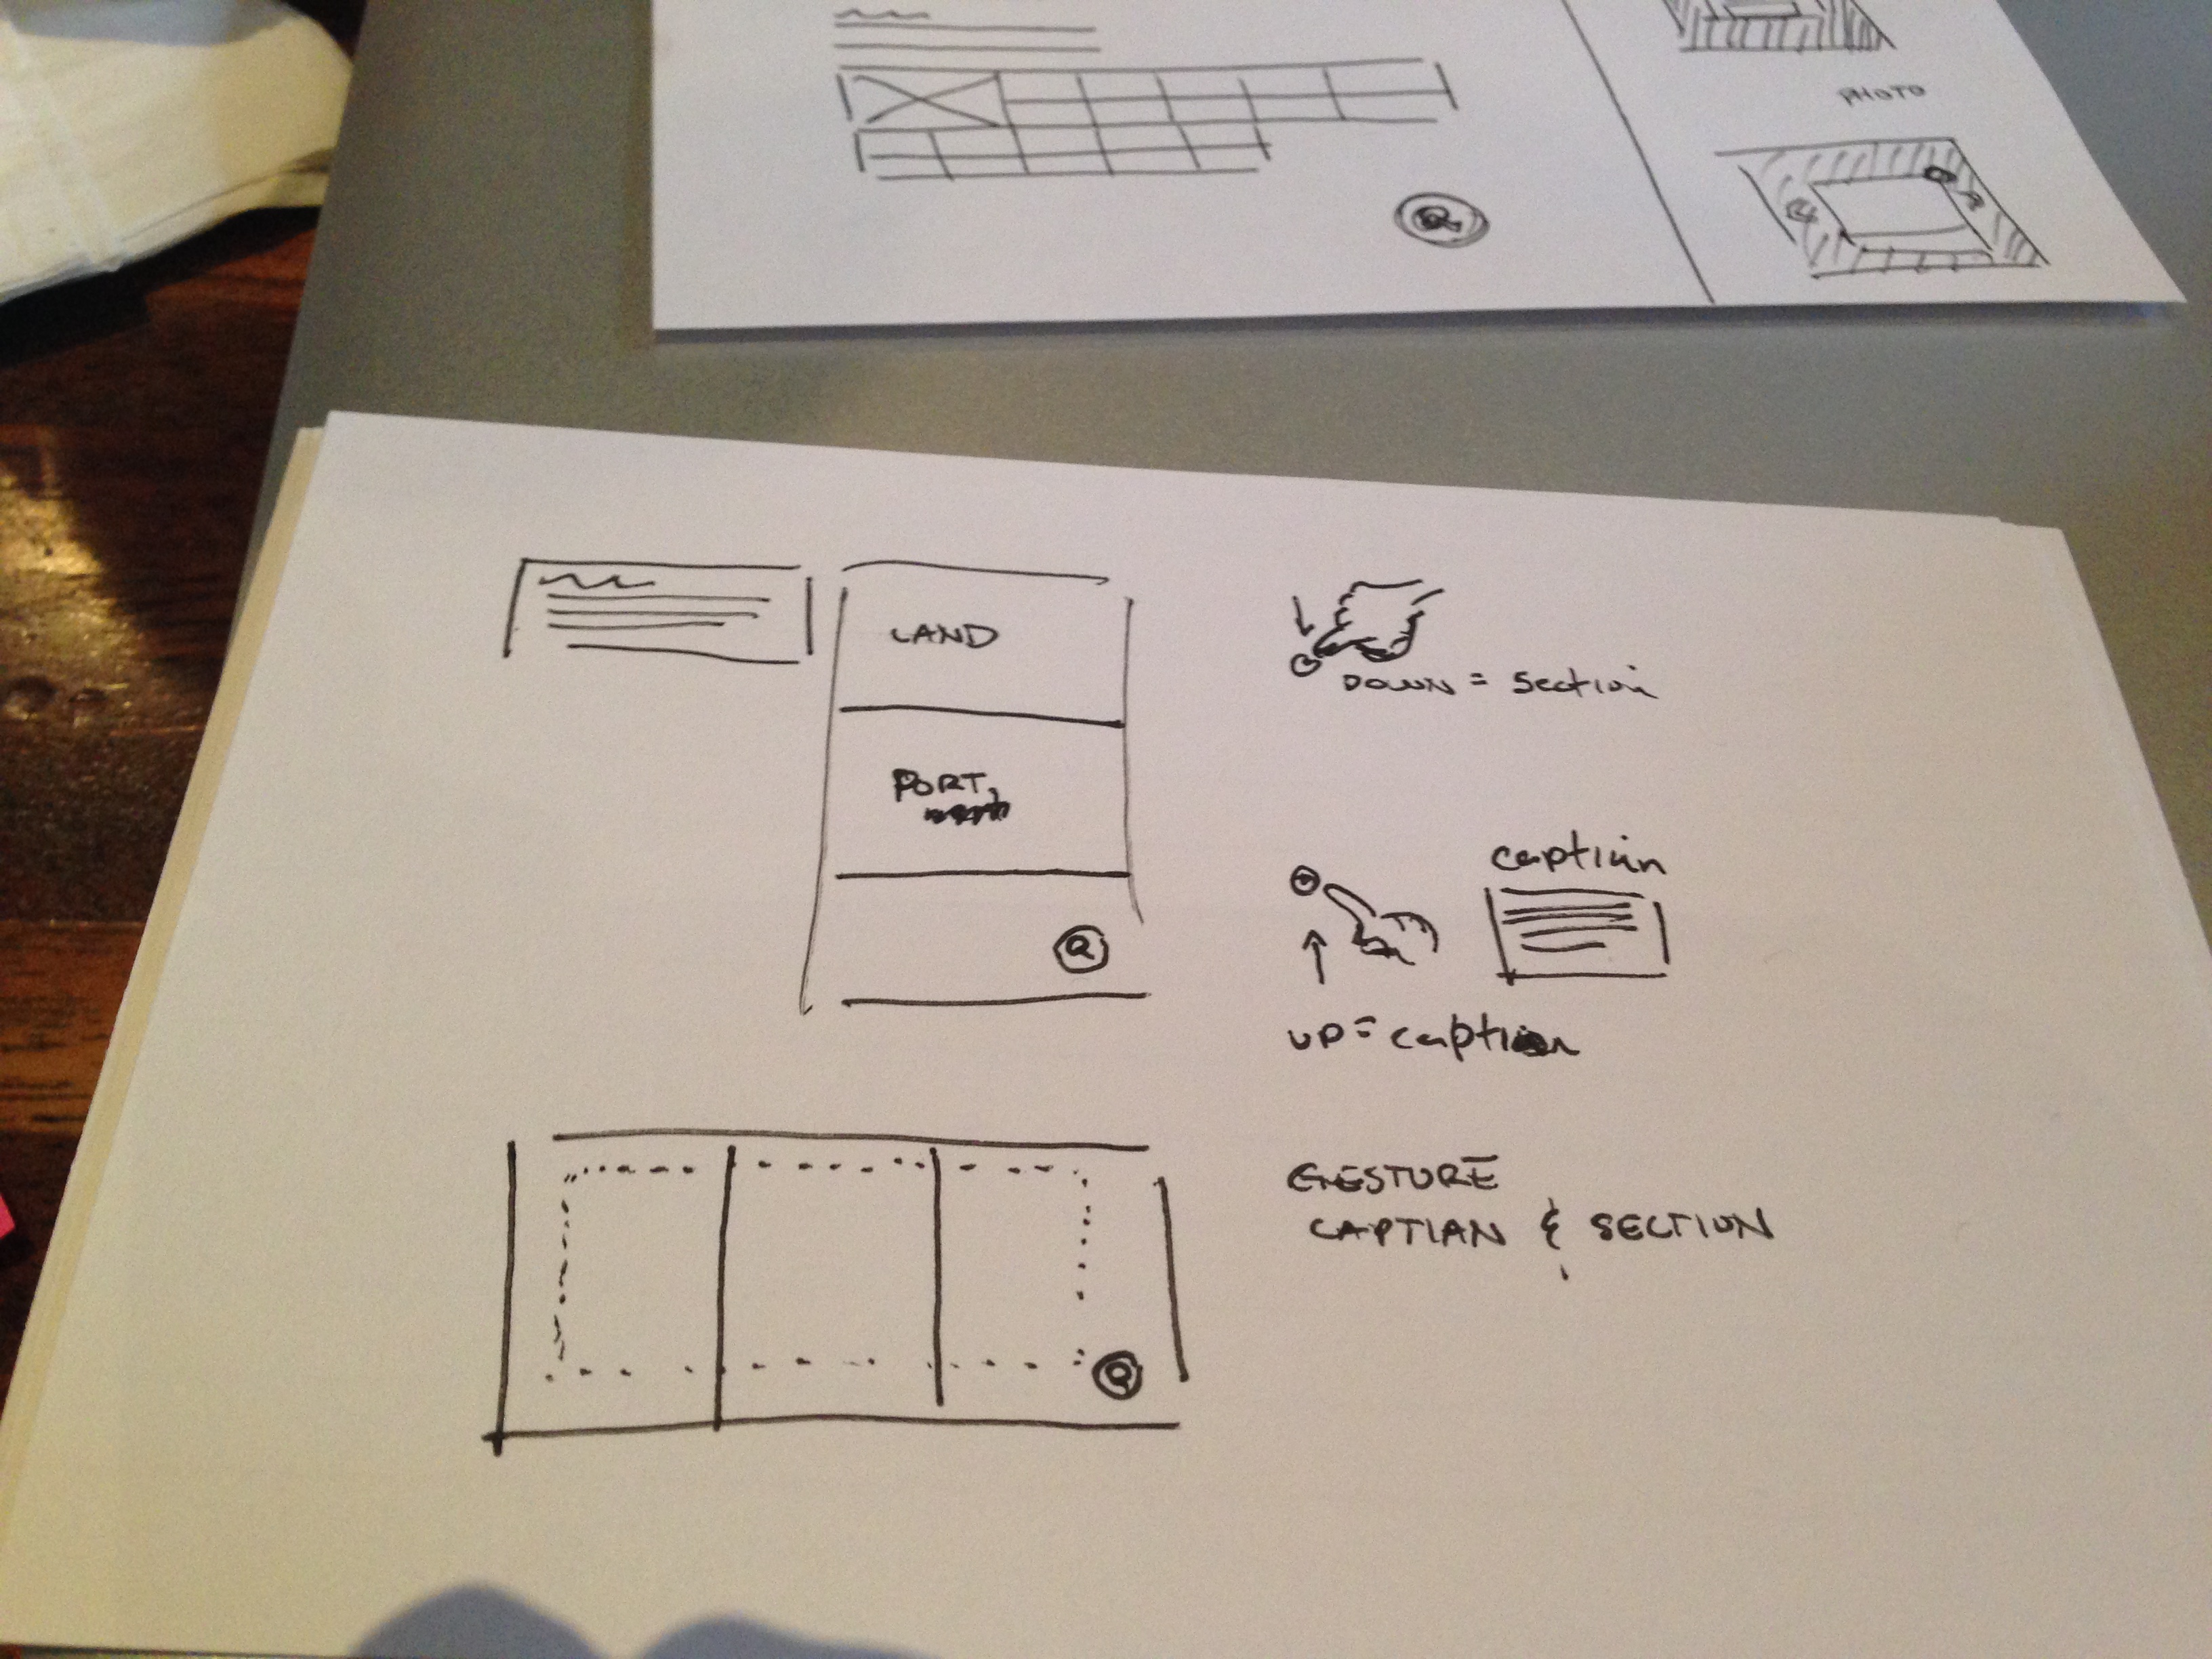 PHOTO
LAND
DOWN = section
PORT,
caption
UP = caption
GESTURE
CAPTIAN & SECTION